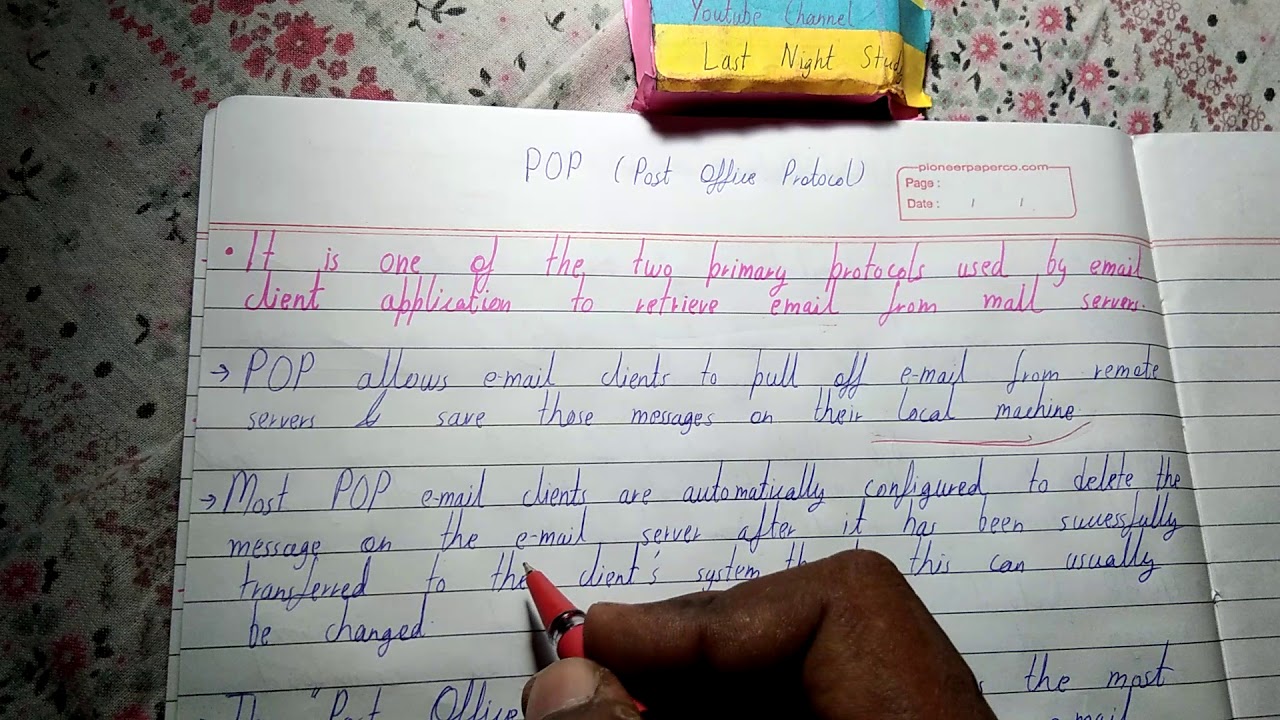 Youtube Channel
Last Night Stud
POP (Post Office Protocol)
pioneerpaperco.com
Page :
Date : / /
• It is one of the two primary protocols used by email
client application to retrieve email from mail servers.
→ POP allows e-mail clients to pull off e-mail from remote
servers & save those messages on their local machine
→ Most POP e-mail clients are automatically configured to delete the
message on the e-mail server after it has been successfully
transferred to the client's system this can usually
be changed
"Post Office the most